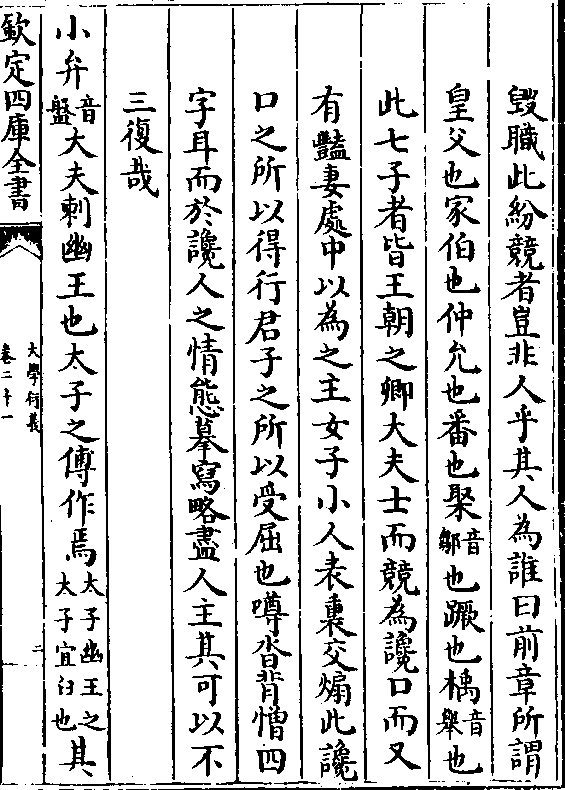 毀職此紛競者豈非人乎其人為誰曰前章所謂
皇父也家伯也仲允也番也聚音鄒也蹶也楀音舉也
此七子者皆王朝之卿大夫士而競為讒口而又
有豔妻處中以為之主女子小人表裏交煽此讒
口之所以得行君子之所以受屈也噂沓背憎四
字耳而於讒人之情態摹寫略盡人主其可以不
三復哉
小弁音盤大夫刺幽王也太子之傅作焉太子幽王之太子宜臼也其
欽定四庫全書
大學衍義
卷二十一
二